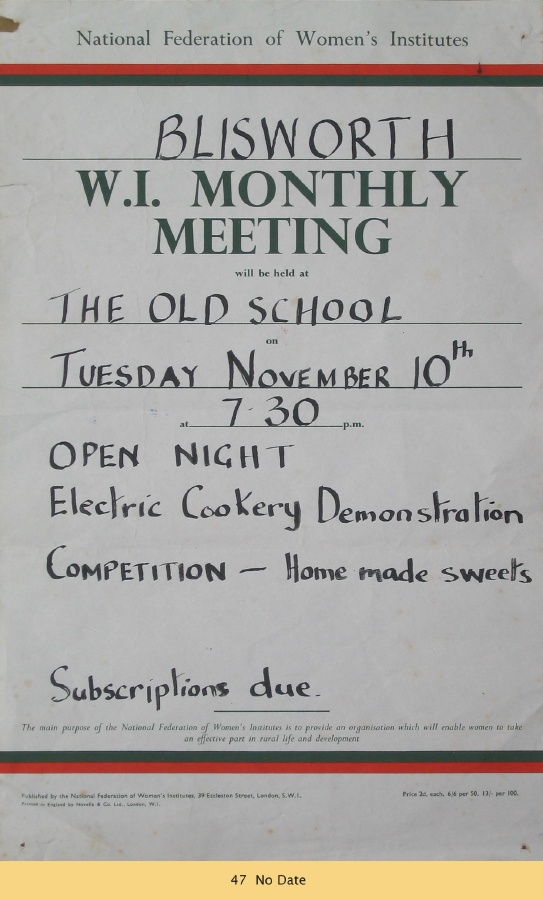 National Federation of Women's Institutes
BLISWORTH
W.I. MONTHLY
MEETING
will be held at
THE OLD SCHOOL
on
TUESDAY NOVEMBER 10th
at 7.30 p.m.
OPEN NIGHT
Electric Cookery Demonstration
COMPETITION – Home made sweets
Subscriptions due.
The main purpose of the National Federation of Women's Institutes is to provide an organisation which will enable women to take
an effective part in rural life and development
Published by the National Federation of Women's Institutes, 39 Eccleston Street, London, S.W.1. Price 2d. each. 6/6 per 50. 13/- per 100.
Printed in England by Novello & Co. Ltd., London, W.1.
47 No Date